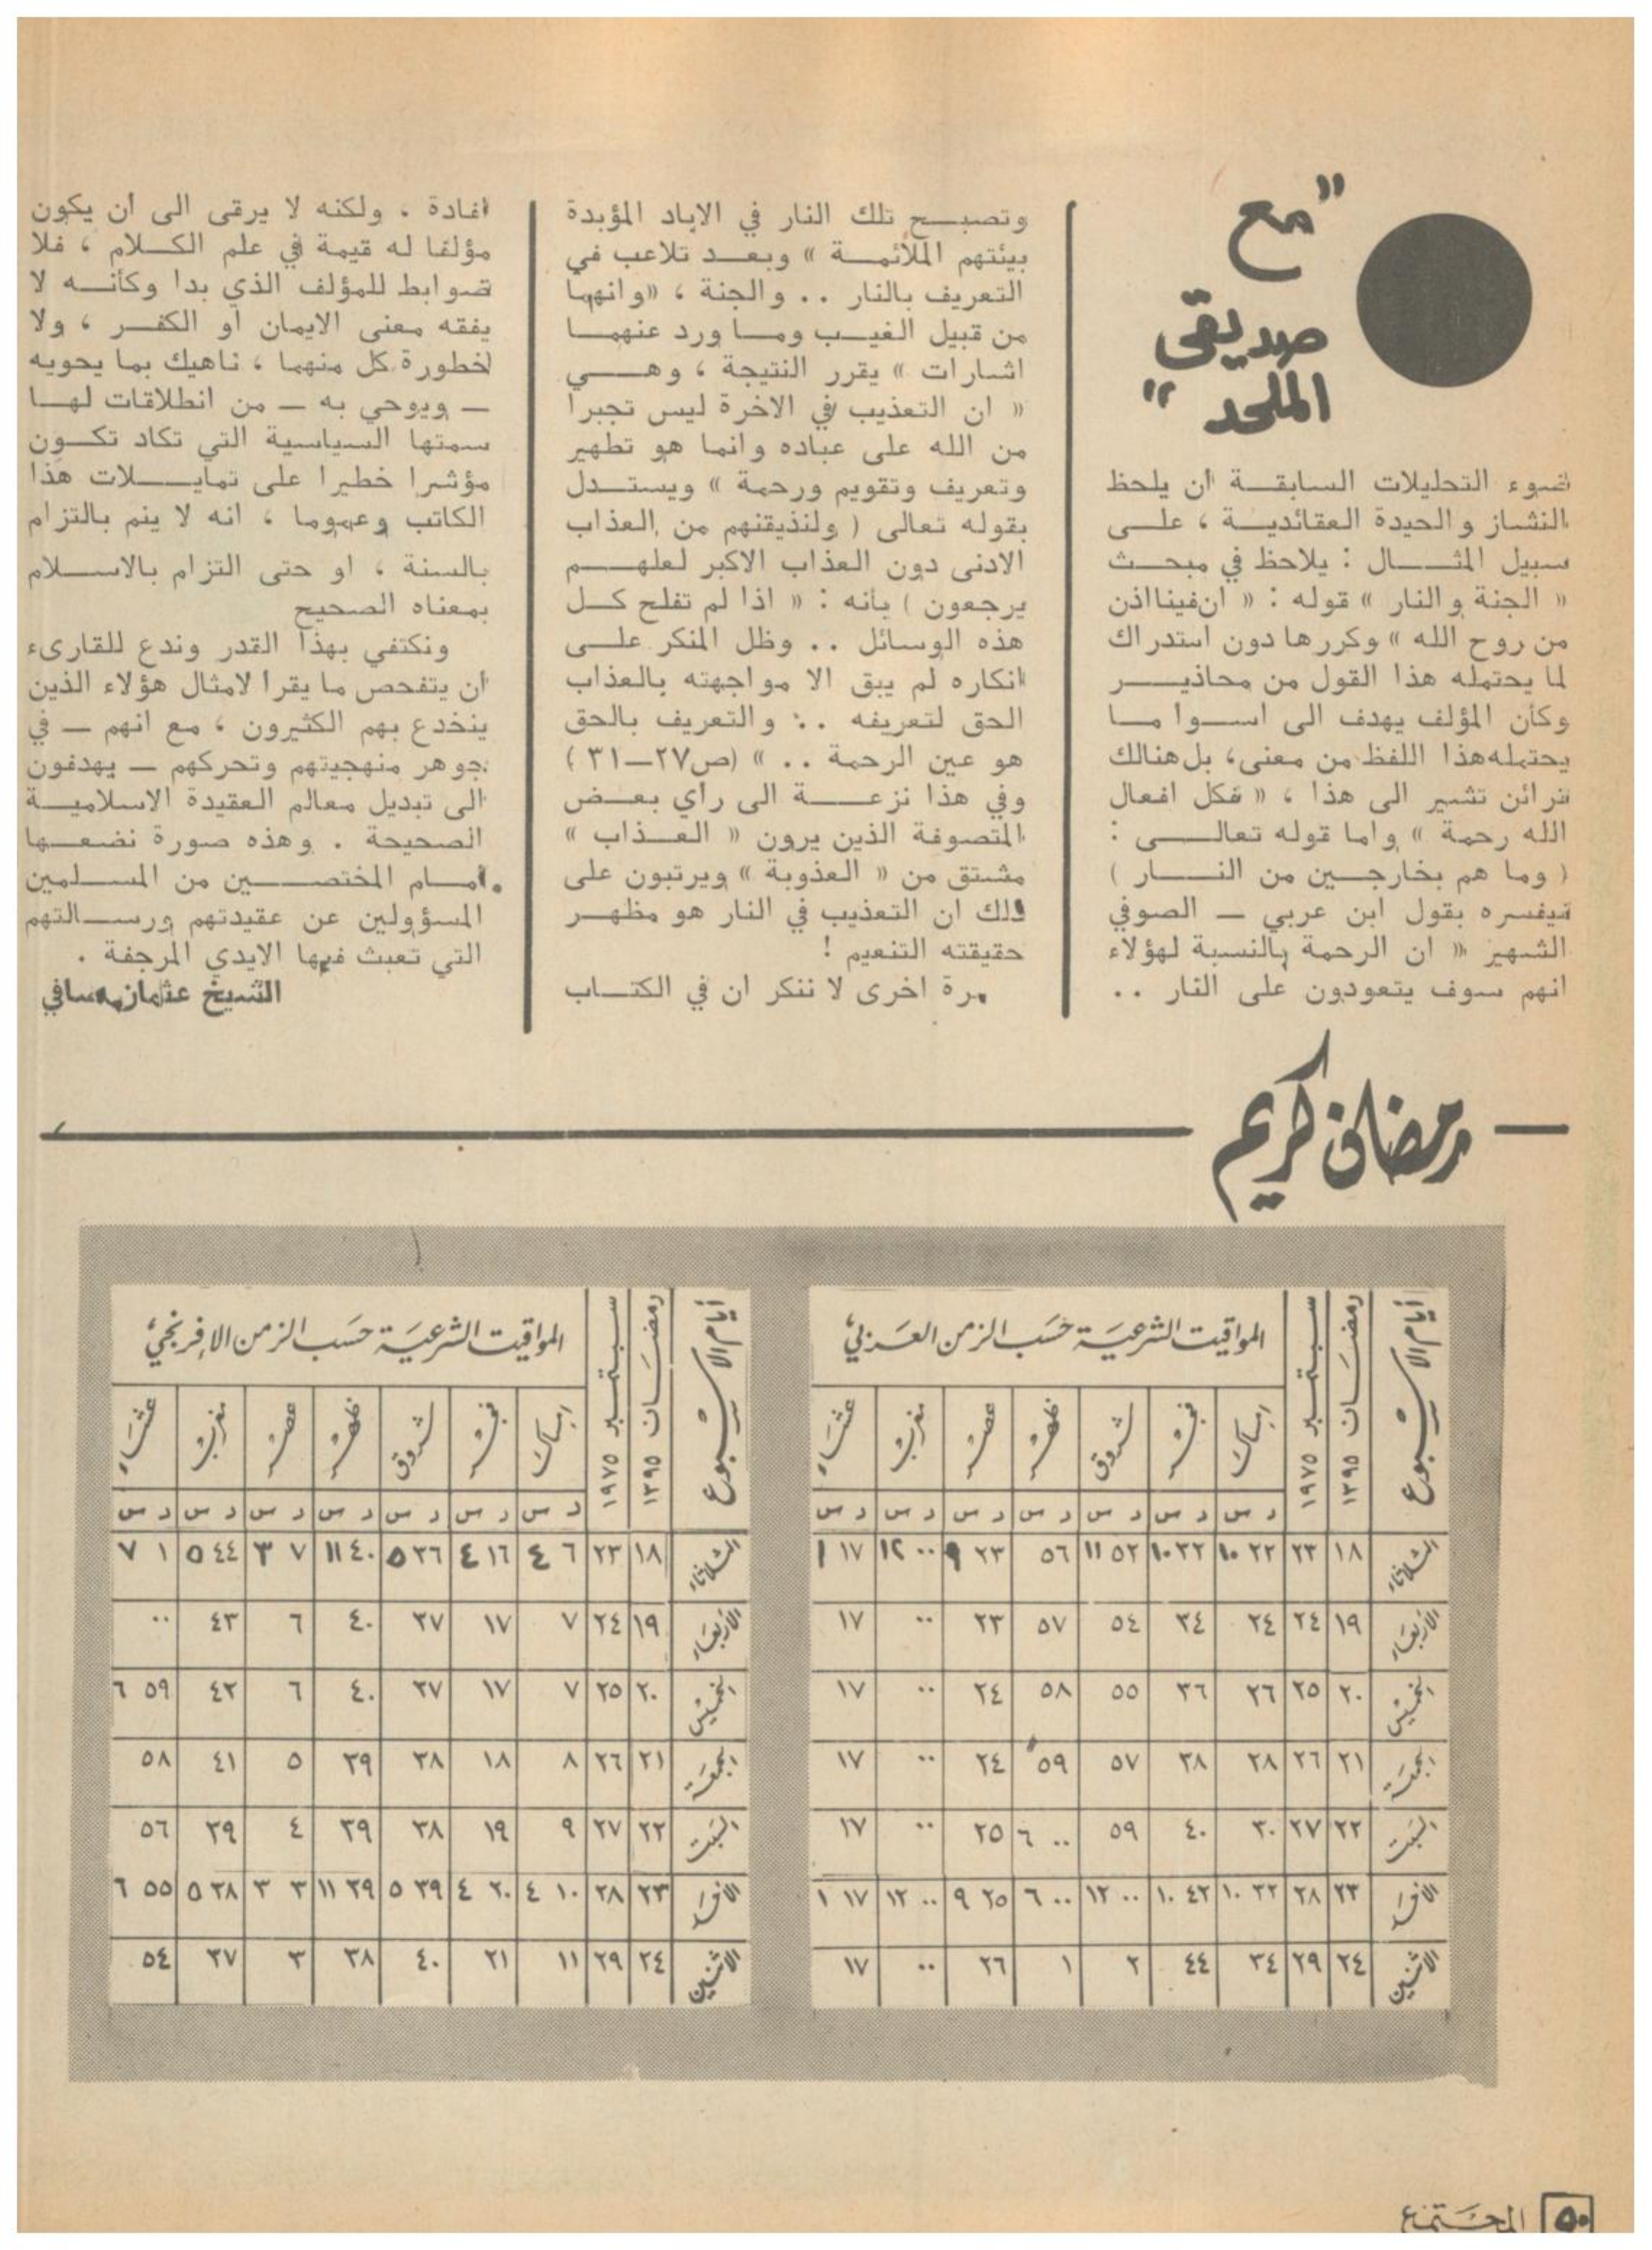 "مع
صديقي
الملحد"
ضوء التحليلات السابقة ان يلحظ
النشاز والحيدة العقائدية ، على
سبيل المثال : يلاحظ في مبحث
« الجنة والنار » قوله : « ان فينا اذن
من روح الله » وكررها دون استدراك
لما يحتمله هذا القول من محاذير
وكأن المؤلف يهدف الى اسوا ما
يحتمله هذا اللفظ من معنى، بل هنالك
قرائن تشير الى هذا ، « فكل افعال
الله رحمة » واما قوله تعالى :
( وما هم بخارجين من النار )
فيفسره بقول ابن عربي – الصوفي
الشهير « ان الرحمة بالنسبة لهؤلاء
انهم سوف يتعودون على النار ..
وتصبح تلك النار في الاباد المؤبدة
بيئتهم الملائمة » وبعد تلاعب في
التعريف بالنار .. والجنة ، «وانهما
من قبيل الغيب وما ورد عنهما
اشارات » يقرر النتيجة ، وهي
« ان التعذيب في الاخرة ليس تجبرا
من الله على عباده وانما هو تطهير
وتعريف وتقويم ورحمة » ويستدل
بقوله تعالى ( ولنذيقنهم من العذاب
الادنى دون العذاب الاكبر لعلهم
يرجعون ) بأنه : « اذا لم تفلح كل
هذه الوسائل .. وظل المنكر على
انكاره لم يبق الا مواجهته بالعذاب
الحق لتعريفه .. والتعريف بالحق
هو عين الرحمة .. » (ص٢٧–٣١)
وفي هذا نزعة الى رأي بعض
المتصوفة الذين يرون « العذاب »
مشتق من « العذوبة » ويرتبون على
ذلك ان التعذيب في النار هو مظهر
حقيقته التنعيم !
مرة اخرى لا ننكر ان في الكتاب
افادة ، ولكنه لا يرقى الى ان يكون
مؤلفا له قيمة في علم الكلام ، فلا
ضوابط للمؤلف الذي بدا وكأنه لا
يفقه معنى الايمان او الكفر ، ولا
لخطورة كل منهما ، ناهيك بما يحويه
– ويوحي به – من انطلاقات لها
سمتها السياسية التي تكاد تكون
مؤشرا خطيرا على تمايلات هذا
الكاتب وعموما ، انه لا ينم بالتزام
بالسنة ، او حتى التزام بالاسلام
بمعناه الصحيح
ونكتفي بهذا القدر وندع للقارىء
أن يتفحص ما يقرا لامثال هؤلاء الذين
ينخدع بهم الكثيرون ، مع انهم – في
جوهر منهجيتهم وتحركهم – يهدفون
الى تبديل معالم العقيدة الاسلامية
الصحيحة . وهذه صورة نضعها
أمام المختصين من المسلمين
المسؤولين عن عقيدتهم ورسالتهم
التي تعبث فيها الايدي المرجفة .
الشيخ عثمان صافي
رمضان كريم
أيام الاسبوع رمضان ١٣٩٥ سبتمبر ١٩٧٥ المواقيت الشرعية حسب الزمن العربي
امساك فجر شروق ظهر عصر مغرب عشاء
د س د س د س د س د س د س د س
الثلاثاء ١٨ ٢٣ ٢٢ ١٠ ٣٢ ١٠ ٥٢ ١١ ٥٦ ٢٣ ٩ ٠٠ ١٢ ١٧ ١
الأربعاء ١٩ ٢٤ ٢٤ ٣٤ ٥٤ ٥٧ ٢٣ ٠٠ ١٧
الخميس ٢٠ ٢٥ ٢٦ ٣٦ ٥٥ ٥٨ ٢٤ ٠٠ ١٧
الجمعة ٢١ ٢٦ ٢٨ ٣٨ ٥٧ ٥٩ ٢٤ ٠٠ ١٧
السبت ٢٢ ٢٧ ٣٠ ٤٠ ٥٩ ٠٠ ٦ ٢٥ ٠٠ ١٧
الأحد ٢٣ ٢٨ ٣٢ ١٠ ٤٢ ١٠ ٠٠ ١٢ ٠٠ ٦ ٢٥ ٩ ٠٠ ١٢ ١٧ ١
الاثنين ٢٤ ٢٩ ٣٤ ٤٤ ٢ ١ ٢٦ ٠٠ ١٧
أيام الاسبوع رمضان ١٣٩٥ سبتمبر ١٩٧٥ المواقيت الشرعية حسب الزمن الإفرنجي
امساك فجر شروق ظهر عصر مغرب عشاء
د س د س د س د س د س د س د س
الثلاثاء ١٨ ٢٣ ٦ ٤ ١٦ ٤ ٣٦ ٥ ٤٠ ١١ ٧ ٣ ٤٤ ٥ ١ ٧
الأربعاء ١٩ ٢٤ ٧ ١٧ ٣٧ ٤٠ ٦ ٤٣ ٠٠
الخميس ٢٠ ٢٥ ٧ ١٧ ٣٧ ٤٠ ٦ ٤٢ ٥٩ ٦
الجمعة ٢١ ٢٦ ٨ ١٨ ٣٨ ٣٩ ٥ ٤١ ٥٨
السبت ٢٢ ٢٧ ٩ ١٩ ٣٨ ٣٩ ٤ ٣٩ ٥٦
الأحد ٢٣ ٢٨ ١٠ ٤ ٢٠ ٤ ٣٩ ٥ ٣٩ ١١ ٣ ٣ ٣٨ ٥ ٥٥ ٦
الاثنين ٢٤ ٢٩ ١١ ٢١ ٤٠ ٣٨ ٣ ٣٧ ٥٤
٥٠ المجتمع